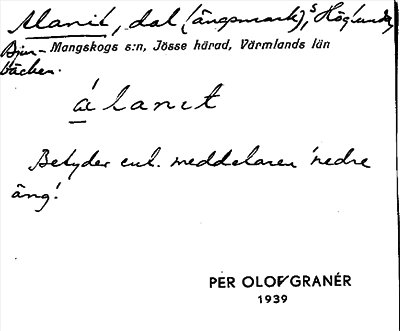 Alanit, dal (ängsmark), S Höglunda,
Mangskogs s:n, Jösse härad, Värmlands län
Djur-
bäcken.
álanit
Betyder enl. meddelaren 'nedre
äng'.
PER OLOV GRANÉR
1939